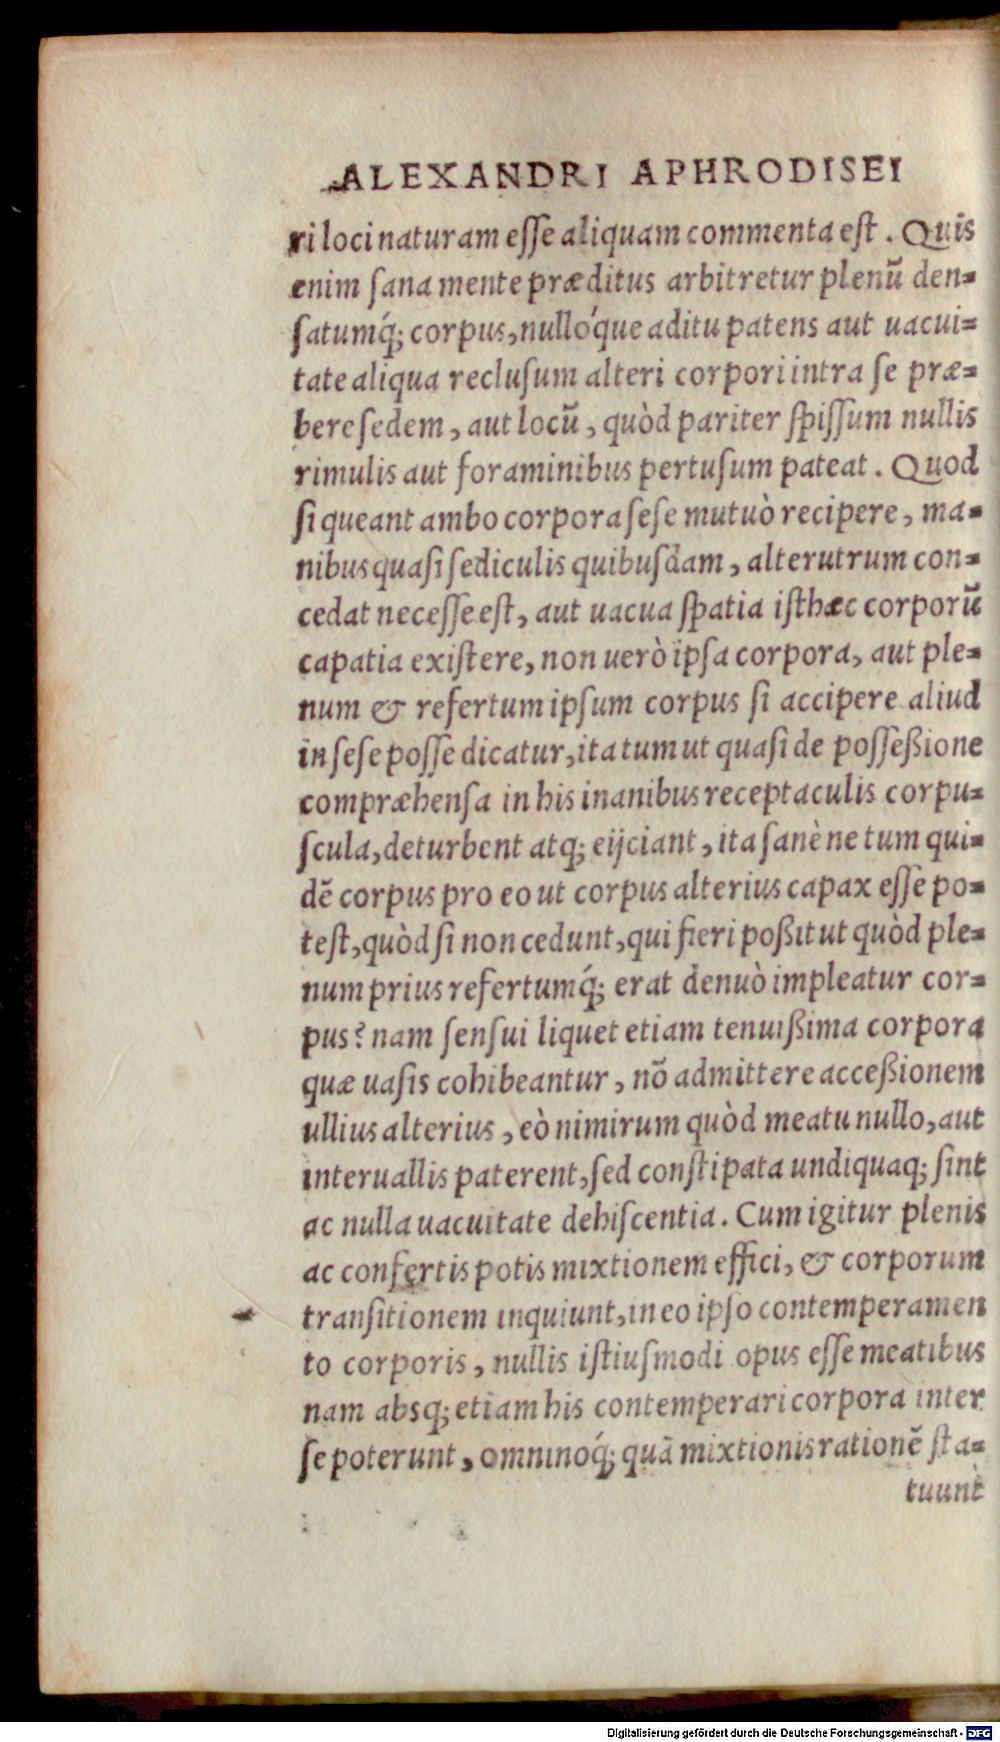 ALEXANDRI APHRODISEI
ri loci naturam eſſe aliquam commenta eſt . Quis
enim ſana mente præditus arbitretur plenū den=
ſatumq́; corpus, nulloq́ue aditu patens aut uacui=
tate aliqua recluſum alteri corpori intra ſe præ=
bere ſedem, aut locū, quòd pariter ſpiſſum nullis
rimulis aut foraminibus pertuſum pateat . Quod
ſi queant ambo corpora ſeſe mutuò recipere, ma=
nibus quaſi ſediculis quibuſdam, alterutrum con=
cedat neceſſe eſt, aut uacua ſpatia iſthæc corporū
capatia exiſtere, non uerò ipſa corpora, aut ple=
num & refertum ipſum corpus ſi accipere aliud
in ſeſe poſſe dicatur, ita tum ut quaſi de poſſeßione
compræhenſa in his inanibus receptaculis corpu=
ſcula, deturbent atq; eijciant, ita ſanè ne tum qui=
dē corpus pro eo ut corpus alterius capax eſſe po=
teſt, quòd ſi non cedunt, qui fieri poßit ut quòd ple=
num prius refertumq́; erat denuò impleatur cor=
pus? nam ſenſui liquet etiam tenuißima corpora
quæ uaſis cohibeantur, nō admittere acceßionem
ullius alterius, eò nimirum quòd meatu nullo, aut
interuallis paterent, ſed conſtipata undiquaq; ſint
ac nulla uacuitate dehiſcentia. Cum igitur plenis
ac confertis potis mixtionem effici, & corporum
tranſitionem inquiunt, in eo ipſo contemperamen
to corporis, nullis iſtiuſmodi opus eſſe meatibus
nam absq; etiam his contemperari corpora inter
ſe poterunt, omninoq́; quā mixtionis rationē ſta=
tuunt
Digitalisierung gefördert durch die Deutsche Forschungsgemeinschaft - DFG